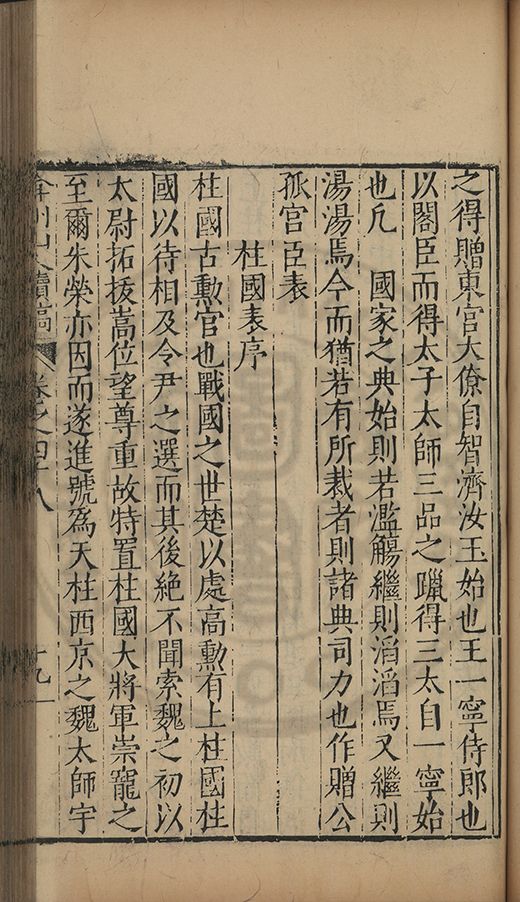 之得贈東宮大僚自智濟汝玉始也王一寧侍郎也
以閣臣而得太子太師三品之躐得三太自一寧始
也凡　國家之典始則若濫觴繼則滔滔焉又繼則
湯湯焉今而猶若有所裁者則諸典司力也作贈公
孤宮臣表
柱國表序
柱國古勳官也戰國之世楚以處高勳有上柱國柱
國以待相及令尹之選而其後絶不聞索魏之初以
太尉拓拔嵩位望尊重故特置柱國大將軍崇寵之
至爾朱榮亦因而遂進號爲天柱西京之魏太師宇
弇州山人續稿　卷之四十八